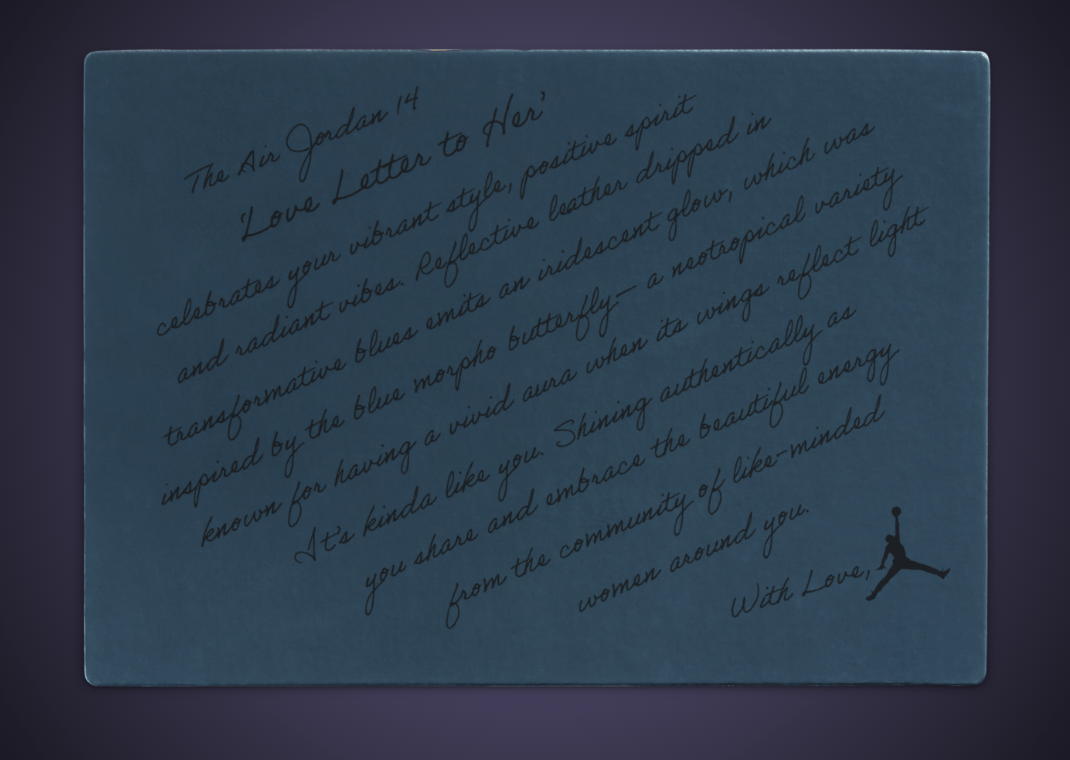 The Air Jordan 14
'Love Letter to Her'
celebrates your vibrant style, positive spirit
and radiant vibes. Reflective leather dripped in
transformative blues emits an iridescent glow, which was
inspired by the blue morpho butterfly— a neotropical variety
known for having a vivid aura when its wings reflect light
It's kinda like you. Shining authentically as
you share and embrace the beautiful energy
from the community of like-minded
women around you.
With Love,